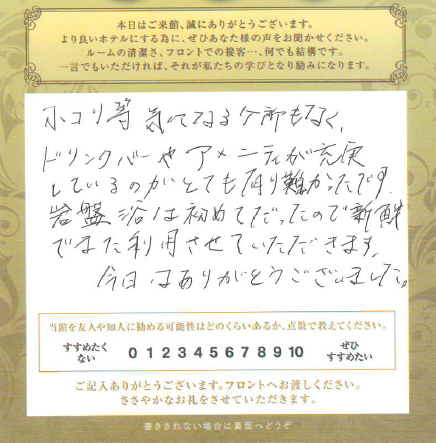 本日はご来館、誠にありがとうございます。
より良いホテルにする為に、ぜひあなた様の声をお聞かせください。
ルームの清潔さ、フロントでの接客…、何でも結構です。
一言でもいただければ、それが私たちの学びとなり励みになります。
ホコリ等 気になるケ所もなく、
ドリンクバーや アメニティが充実
しているのがとても有り難かったです
岩盤浴は初めてだったので新鮮
でまた利用させていただきます。
今日はありがとうございました。
当館を友人や知人に勧める可能性はどのくらいあるか、点数で教えてください。
すすめたくない 0 1 2 3 4 5 6 7 8 9 10 ぜひすすめたい
ご記入ありがとうございます。フロントへお渡しください。
ささやかなお礼をさせていただきます。
書ききれない場合は裏面へどうぞ